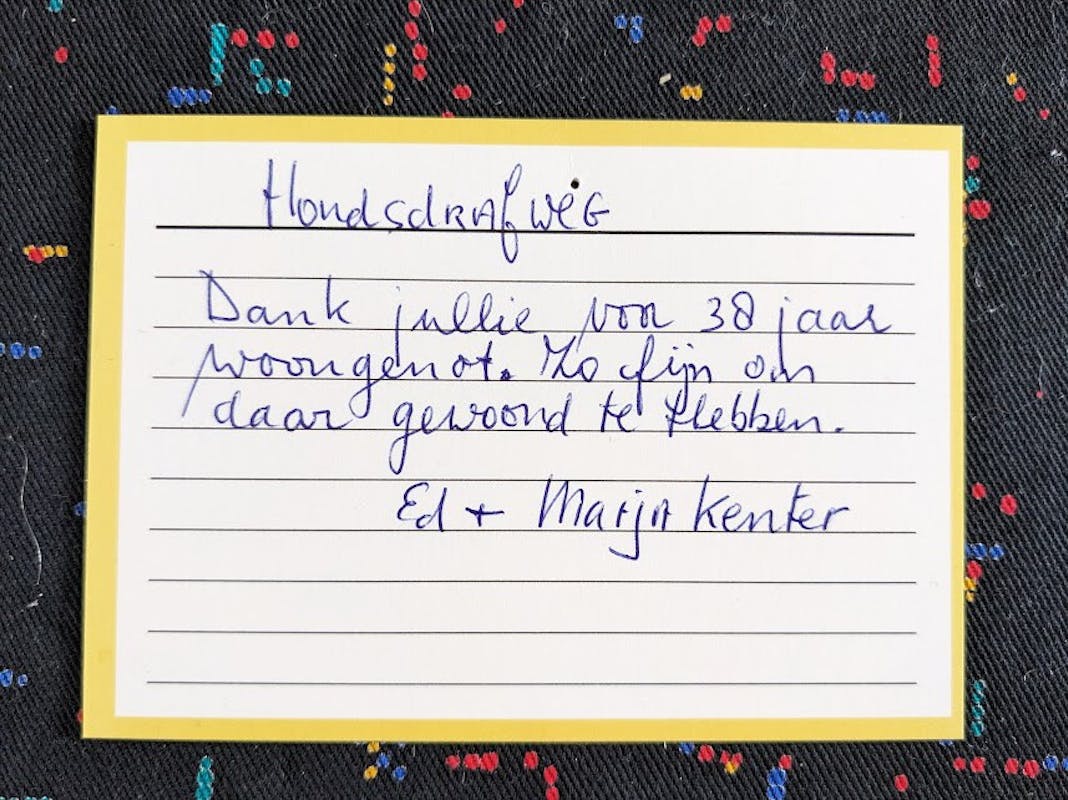 Hondsdrafweg
Dank jullie voor 38 jaar
woongenot. Zo fijn om
daar gewoond te Hebben.
Ed + Marja Kenter